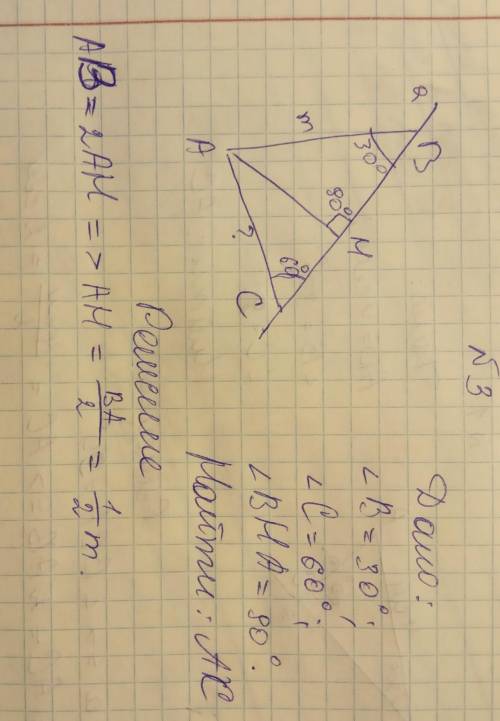 N3
Дано:
∠B = 30°;
∠C = 60°;
∠BHA = 90°.
Найти: AC
a
B
30°
m
A
90°
H
60°
?
C
Решение
AB = 2AH => AH = BA/2 = 1/2 m.